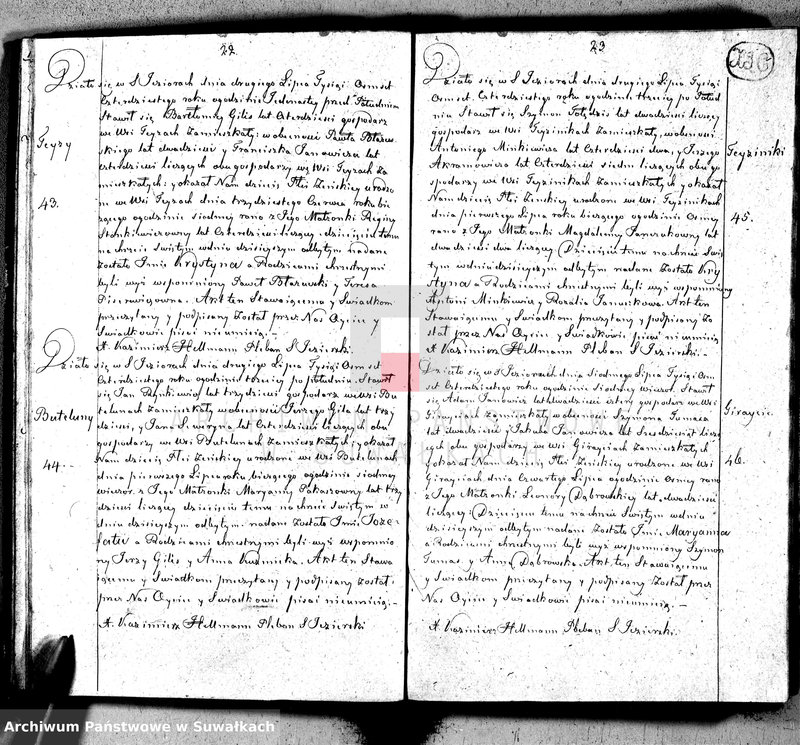 22
Działo się w S Jeziorach dnia drugiego Lipca Tysiąc Osmset
Czterdziestego roku ogodzinie Jedenastej przed Południem
Stawił się Bartłomiy Gilis lat Czterdzieści gospodarz
we Wsi Feyzach Zamieszkały: wobecności Pawła
lat dwadzieścia y Franciszka Janowicza lat
Czterdzieści liczących obu gospodarzy we Wsi Feyzach Za
mieszkałych: y okazał Nam dziecię Płci Żeńskiej urodzo
ne we Wsi Feyzach dnia trzydziestego Czerwca roku bie
żącego ogodzinie siodmej rano z Jego Małżonki Reginy
lat Czterdzieści liczącej: dziecięciu temu
na chrzcie Swiętym wdniu dzisieyszym odbytym nadane
zostało Imie Krystyna a Rodzicami chrzestnymi
byli wyż wspomniony Paweł y Teresa
Akt ten Stawaiącemu y Swiadkom
przeczytany y podpisany Został przez Nas Oyciec y
Swiadkowie pisać nieumieią.—
X. Kazimierz Hellmann Pleban S Jezierski.
Feyzy
43.
Działo się w S Jeziorach dnia drugiego Lipca Tysiąc Osmset
Czterdziestego roku ogodzinie trzeciej po południu. Stawił
się Jan Rynkiewicz lat trzydzieści gospodarz we Wsi Bu
telunach Zamieszkały wobecności Jerzego Gila lat trzy
dzieści, y Jana lat Czterdzieści liczących obu
gospodarzy we Wsi Butelunach Zamieszkałych: y okazał
Nam dziecię Płci Żeńskiej urodzone we Wsi Butelunach
dnia pierwszego Lipca roku bieżącego ogodzinie siodmej
wieczor z Jego Małżonki Maryanny lat trzy
dzieści liczącej dziecięciu temu na chrzcie Swiętym w
dniu dzisieyszym odbytym nadane Zostało Imie Joze-
fata a Rodzicami chrzestnymi byli wyż wspomnio
ny Jerzy Gilis y Anna Kuźnicka. Akt ten Stawa
iącemu y Swiadkom przeczytany y podpisany Został
przez Nas Oyciec y Swiadkowie pisać nieumieią.—
X. Kazimierz Hellmann Pleban S Jezierski
Buteluny
44.
23
Działo się w S Jeziorach dnia drugiego Lipca Tysiąc
Osmset Czterdziestego roku ogodzinie trzeciej po Połud
niu Stawił się Szymon lat dwadzieścia liczący
gospodarz we Wsi Feyzinikach Zamieszkały, wobecności
Antoniego Minkiewicza lat Czterdzieści dwa, y Jozefa
Akramowicza lat Czterdzieści siedm liczących obu go
spodarzy we Wsi Feyzinikach Zamieszkałych y okazał
Nam dziecię Płci Żeńskiej urodzone we Wsi Feyzinikach
dnia pierwszego Lipca roku bieżącego ogodzinie Osmej
rano z Jego Małżonki Magdaleny lat
dwadzieścia dwa liczącej Dziecięciu temu na chrzcie Swię
tym wdniu dzisieyszym odbytym nadane Zostało Kry
styna a Rodzicami chrzestnymi byli wyż wspomniony
Antoni Minkiewicz y Rozalia Januszkowa. Akt ten
Stawaiącemu y Swiadkom przeczytany y podpisany Zo
stał przez Nas Oyciec y Swiadkowie pisać nieumieią
X. Kazimierz Hellmann Pleban S Jezierski.—
Feyziniki
45.
Działo się w S Jeziorach dnia Siodmego Lipca Tysiąc Osm
set Czterdziestego roku ogodzinie Siodmej wieczor. Stawił
się Adam Janowicz lat dwadzieścia cztery gospodarz we Wsi
Giraycach Zamieszkały wobecności Szymona Tumasa
lat dwadzieścia y Jakuba Janowicza lat Szesdziesiąt licza
cych obu gospodarzy we Wsi Giraycach Zamieszkałych
y okazał Nam dziecię Płci Żeńskiej urodzone we Wsi
Giraycach, dnia Czwartego Lipca ogodzinie Osmej rano
z Jego Małżonki Leonory Dąbrowskiej lat dwadzieścia
liczącej: Dziecięciu temu na chrzcie Swiętym wdniu
dzisieyszym odbytym nadane Zostało Imie Maryanna
a Rodzicami chrzestnymi byli wyż wspomniony Szymon
Tumas, y Anna Dąbrowska. Akt ten Stawaiącemu
y Swiadkom przeczytany y podpisany Został przez
Nas Oyciec y Swiadkowie pisać nieumieią.—
X. Kazimierz Hellmann Pleban S Jezierski.
Girayce.
46.
Archiwum Państwowe w Suwałkach